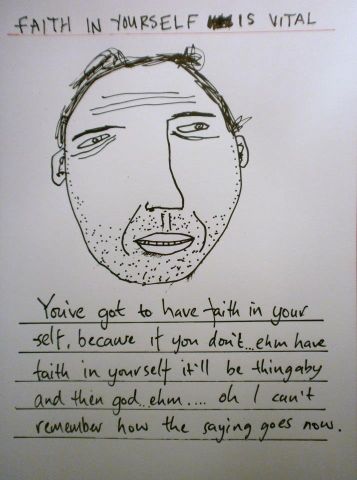 FAITH IN YOURSELF IS VITAL
You've got to have faith in your
self, because if you don't...ehm have
faith in yourself it'll be thingaby
and then god..ehm.... oh I can't
remember how the saying goes now.